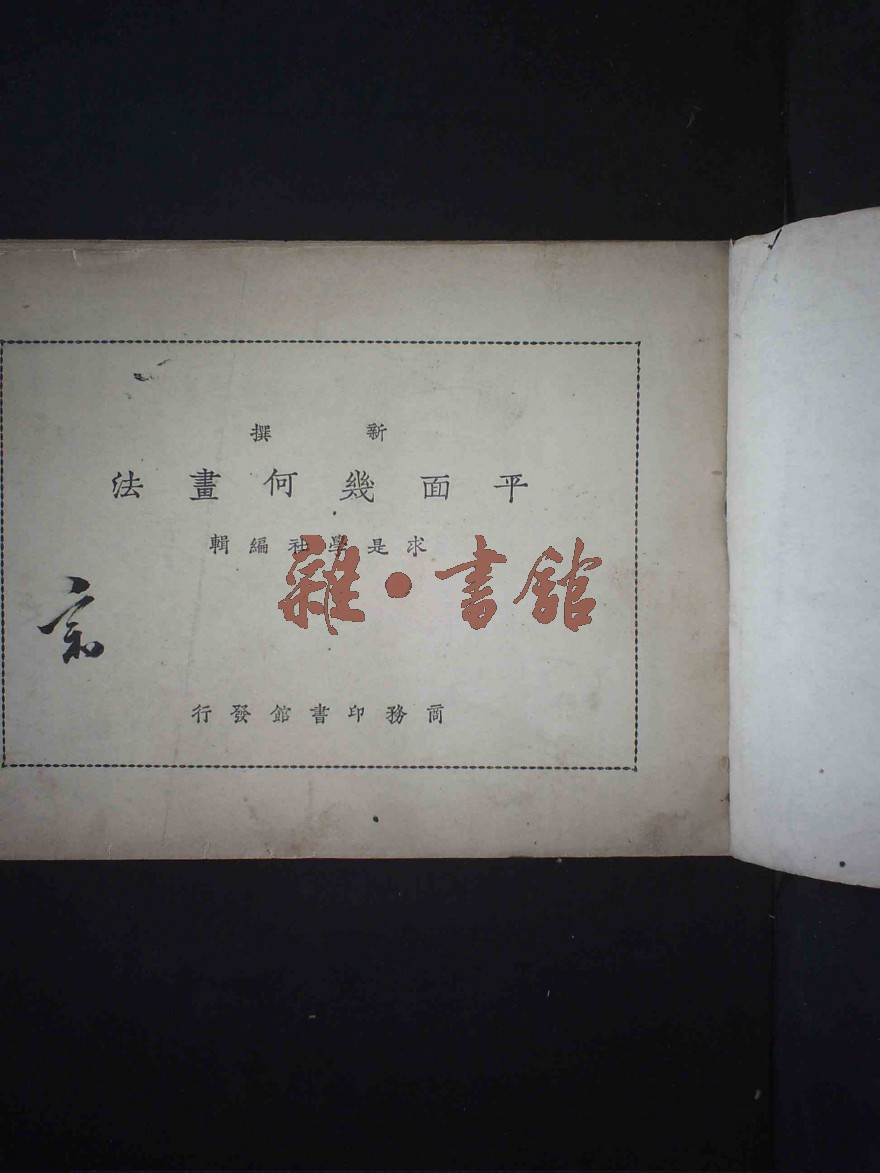 新撰
平面幾何畫法
求是學社編輯
雜·書館
商務印書館發行